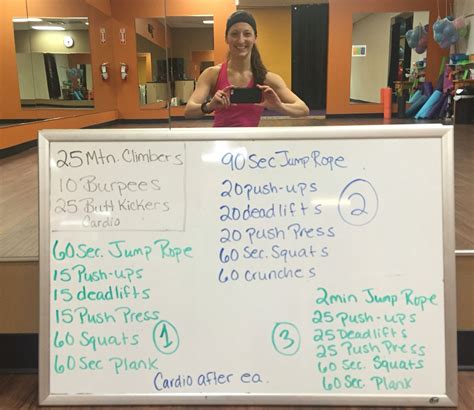 25 Mtn. Climbers
10 Burpees
25 Butt Kickers
Cardio
60 Sec. Jump Rope
15 Push-ups
15 deadlifts
15 Push Press
60 Squats
60 Sec Plank
1
90 Sec Jump Rope
20 push-ups
20 deadlifts
20 push Press
60 Sec. Squats
60 crunches
2
2min Jump Rope
25 push-ups
25 Deadlifts
25 Push Press
60 Sec. Squats
60 Sec. Plank
3
Cardio after ea.